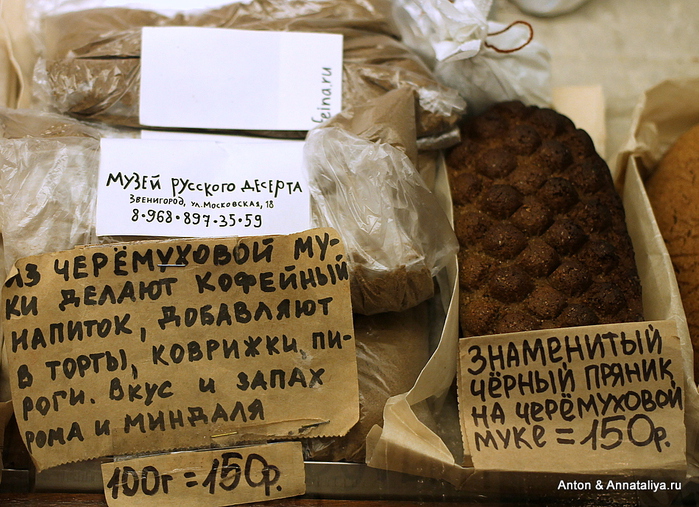 feina.ru
Музей русского десерта
Звенигород, ул.Московская, 18
8-968-897-35-59
Из черёмуховой му-
ки делают кофейный
напиток, добавляют
в торты, коврижки, пи-
роги. Вкус и запах
рома и миндаля
100г = 150р.
Знаменитый
чёрный пряник
на черёмуховой
муке = 150р.
Anton & Annataliya.ru